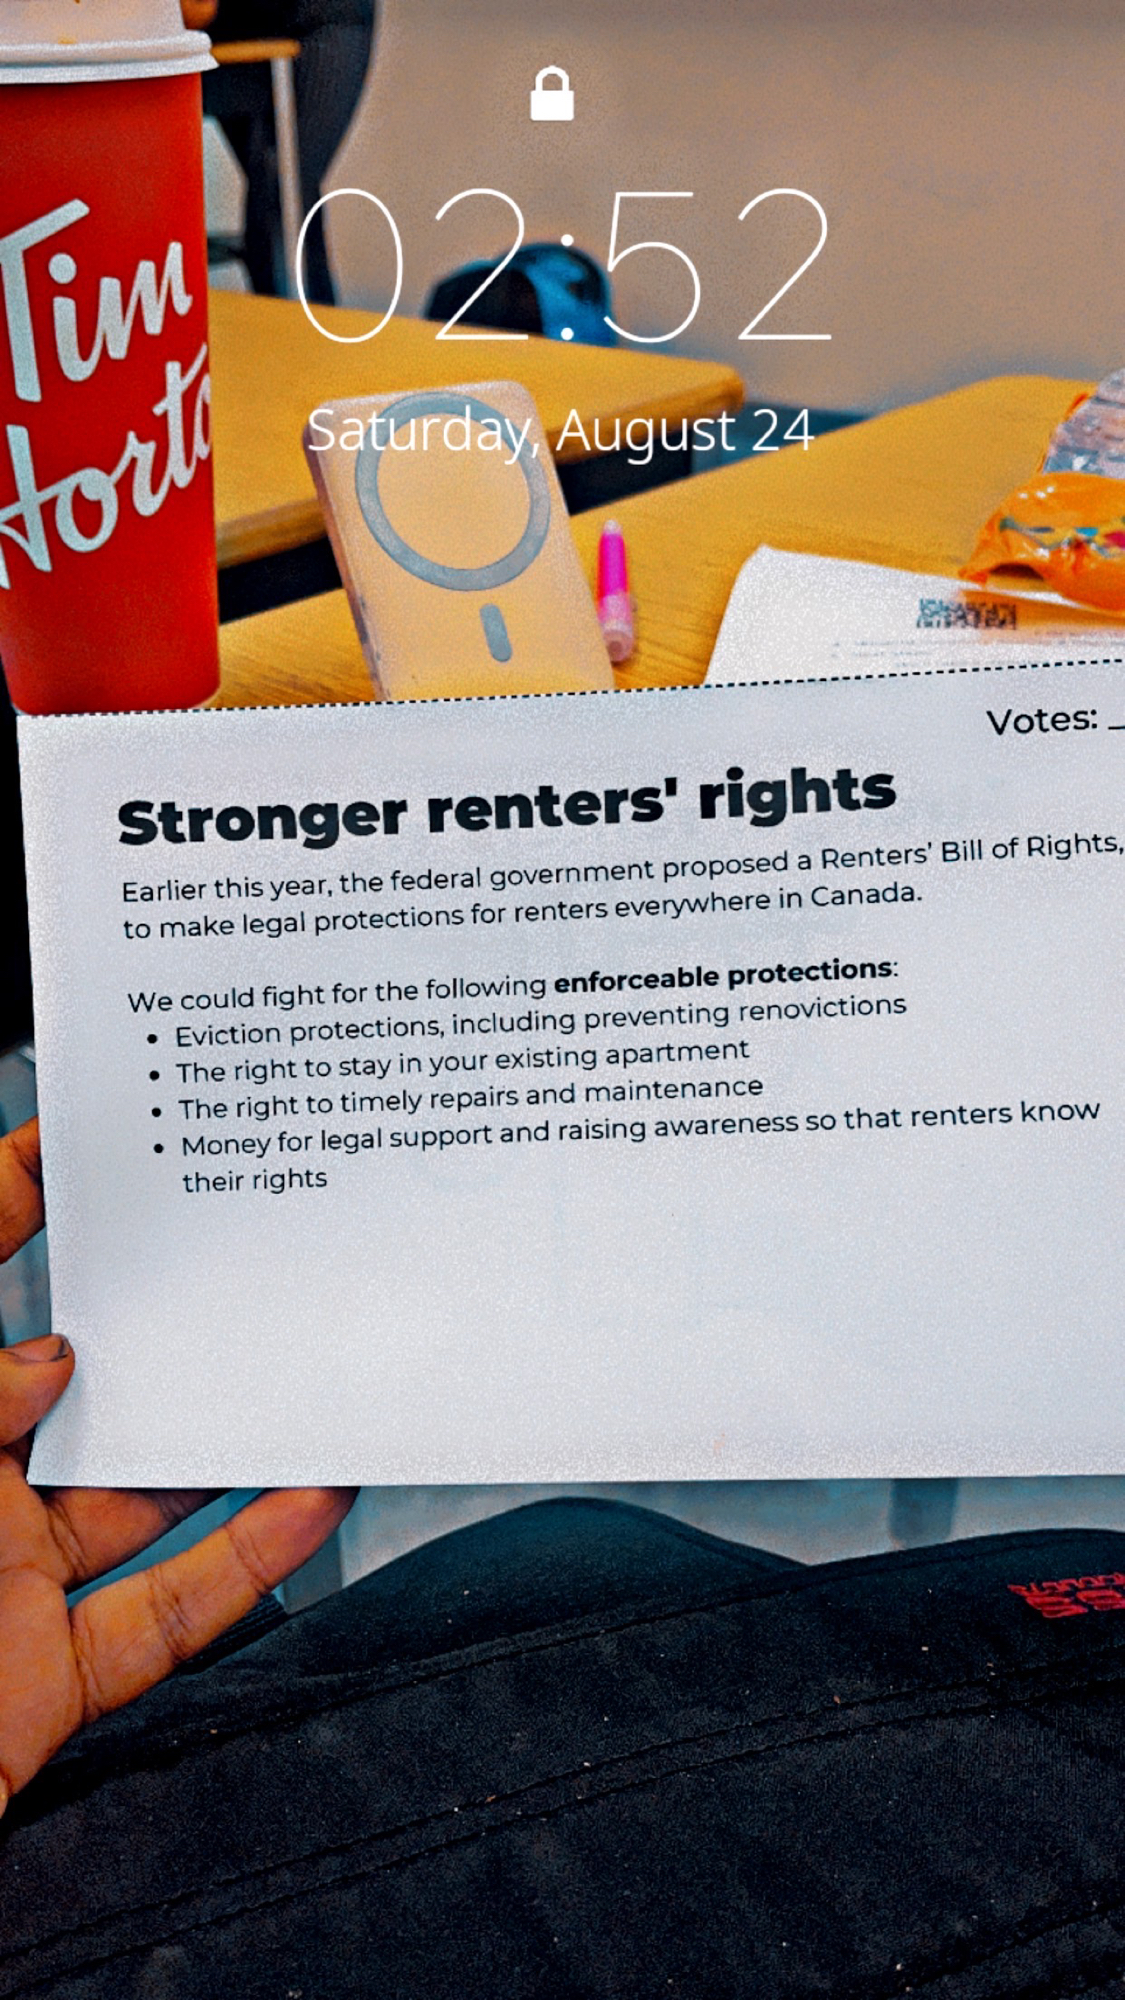 Tim
Horto
02:52
Saturday, August 24
Votes:
Stronger renters' rights
Earlier this year, the federal government proposed a Renters' Bill of Rights,
to make legal protections for renters everywhere in Canada.
We could fight for the following enforceable protections:
• Eviction protections, including preventing renovictions
• The right to stay in your existing apartment
• The right to timely repairs and maintenance
• Money for legal support and raising awareness so that renters know
their rights